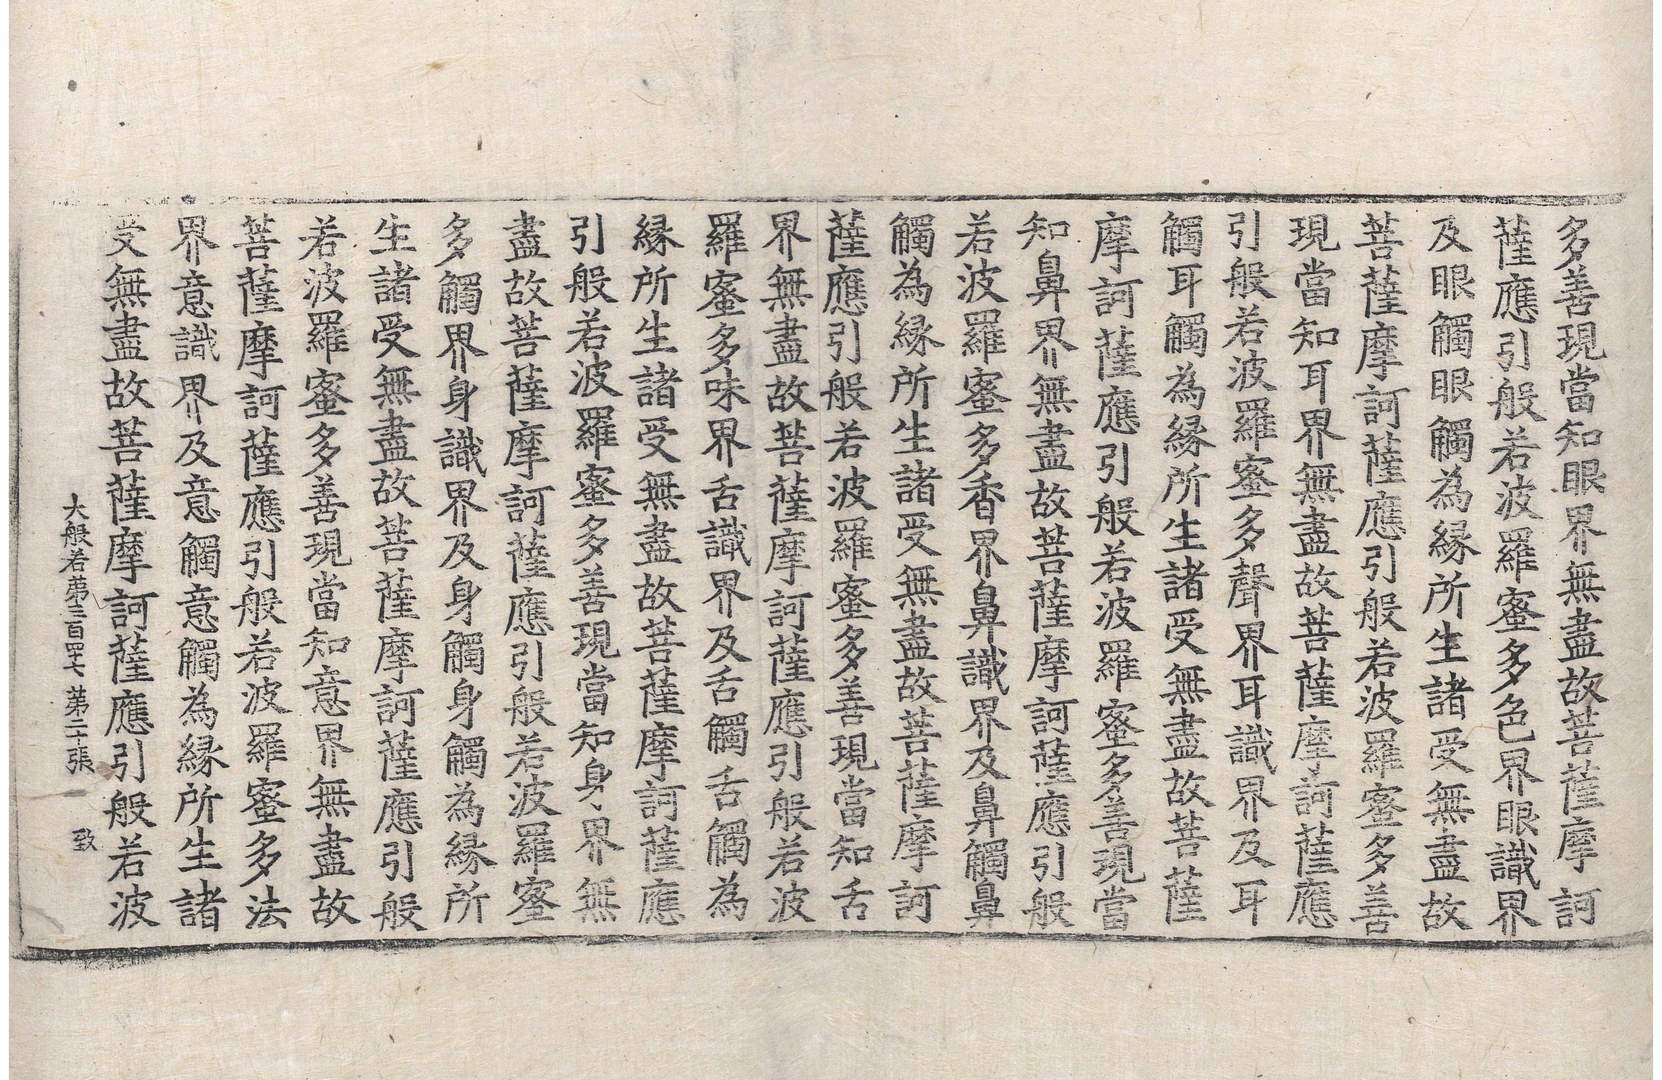 多善現當知眼界無盡故菩薩摩訶
薩應引般若波羅蜜多色界眼識界
及眼觸眼觸為縁所生諸受無盡故
菩薩摩訶薩應引般若波羅蜜多善
現當知耳界無盡故菩薩摩訶薩應
引般若波羅蜜多聲界耳識界及耳
觸耳觸為縁所生諸受無盡故菩薩
摩訶薩應引般若波羅蜜多善現當
知鼻界無盡故菩薩摩訶薩應引般
若波羅蜜多香界鼻識界及鼻觸鼻
觸為縁所生諸受無盡故菩薩摩訶
薩應引般若波羅蜜多善現當知舌
界無盡故菩薩摩訶薩應引般若波
羅蜜多味界舌識界及舌觸舌觸為
縁所生諸受無盡故菩薩摩訶薩應
引般若波羅蜜多善現當知身界無
盡故菩薩摩訶薩應引般若波羅蜜
多觸界身識界及身觸身觸為縁所
生諸受無盡故菩薩摩訶薩應引般
若波羅蜜多善現當知意界無盡故
菩薩摩訶薩應引般若波羅蜜多法
界意識界及意觸意觸為縁所生諸
受無盡故菩薩摩訶薩應引般若波
大般若第三百四七 第二十張 致